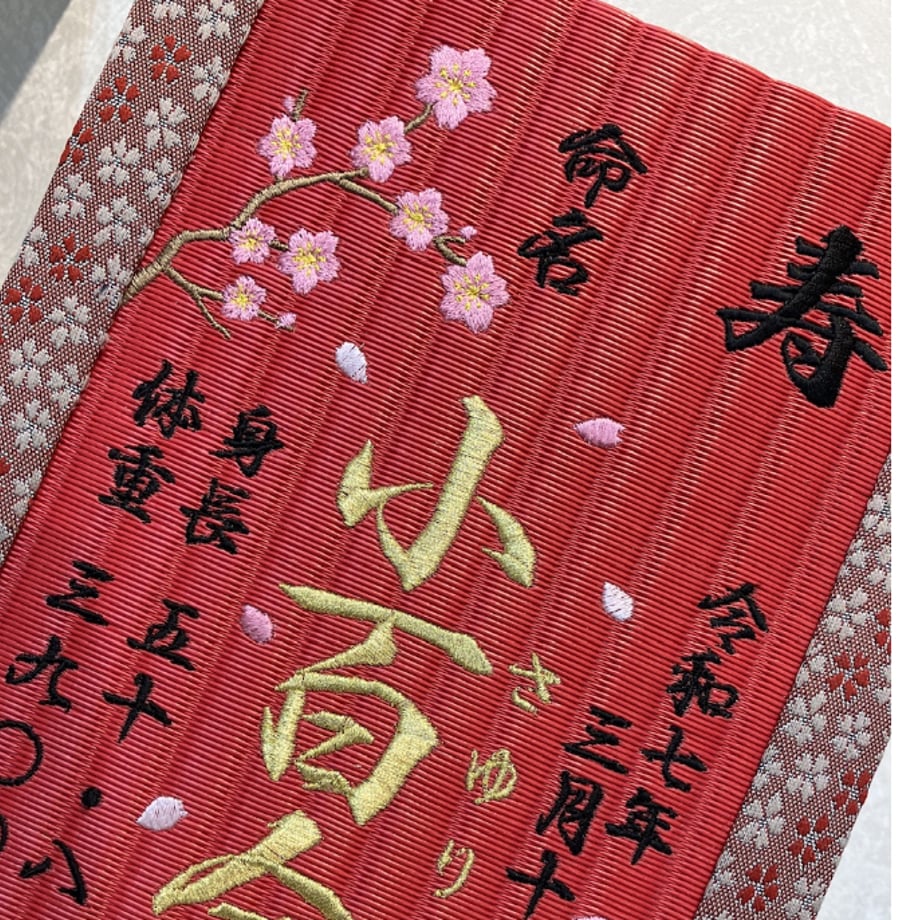 寿
令和七年
三月十
命名
さゆり
小百合
身長 五十・八
体重 三九〇